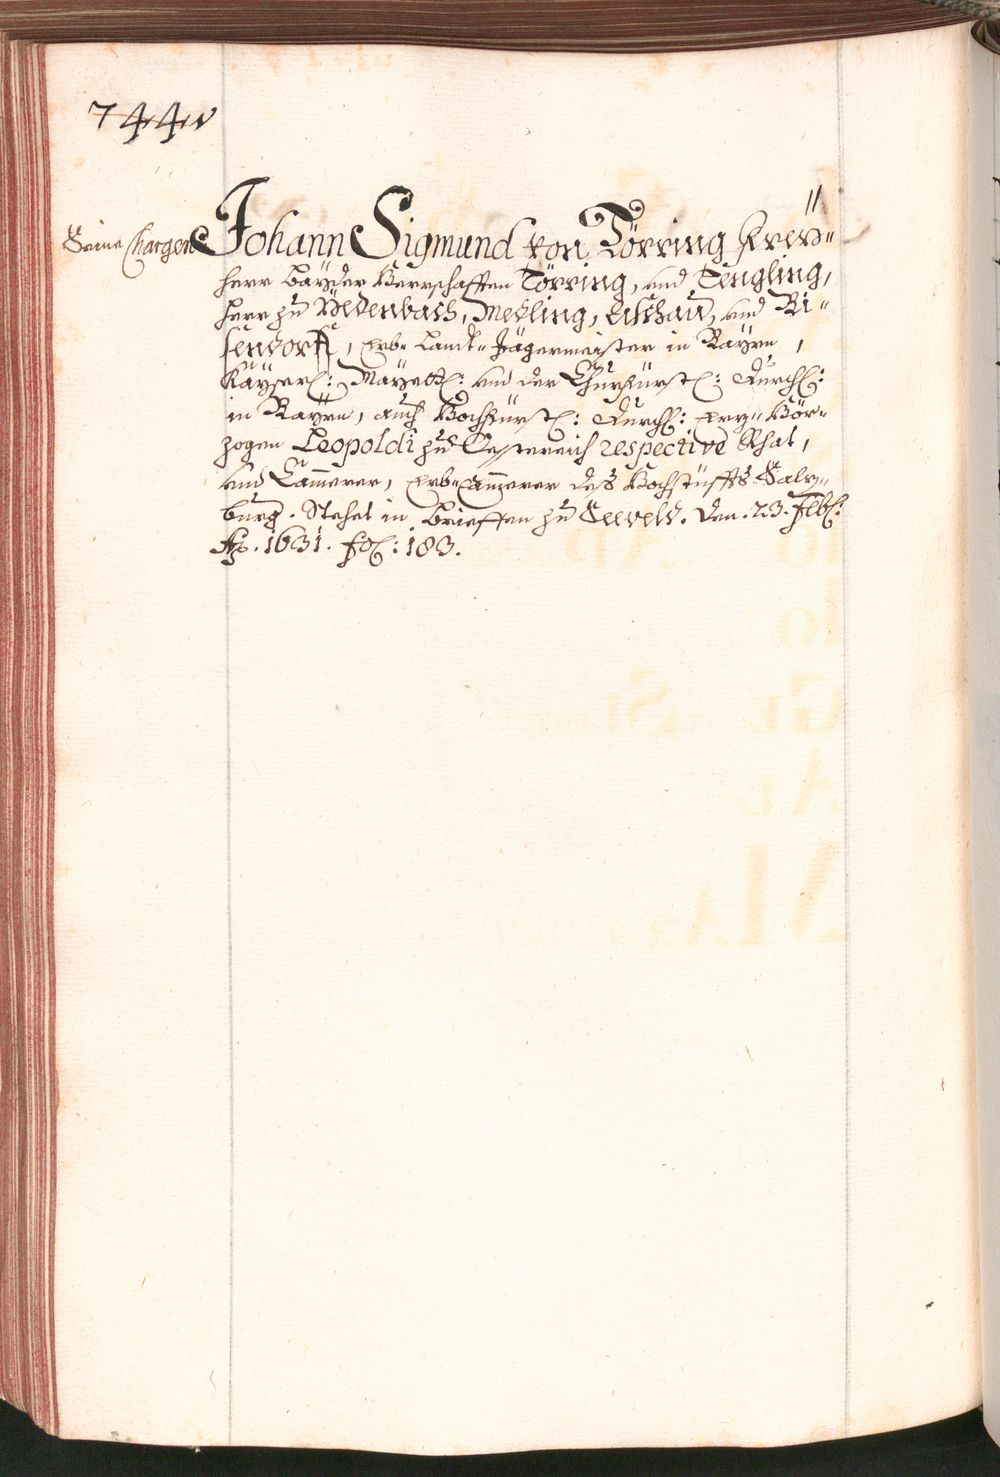 744v
11
Seine Chargen
Johann Sigmund von Törring Frey=
herr bayder Herrschafften Törring, und Tengling,
herr zu Medling, und Ri=
sendorff, Erb= Landt= Jägermeister in Bayrn,
Kayserl: Mayestt: und der Churfürstl: Durchl:
in Bayrn, auch Hochfürstl: Durchl: Erz= Hör=
zogen Leopoldi zu Oesterreich respective Rhat,
und Cam̄erer, Erb=Cam̄erer deß Hochstüffts Salz=
burg. Stehet in brieffen zu Seeveld. den. 23. Feb:
Ao. 1631. fol: 183.